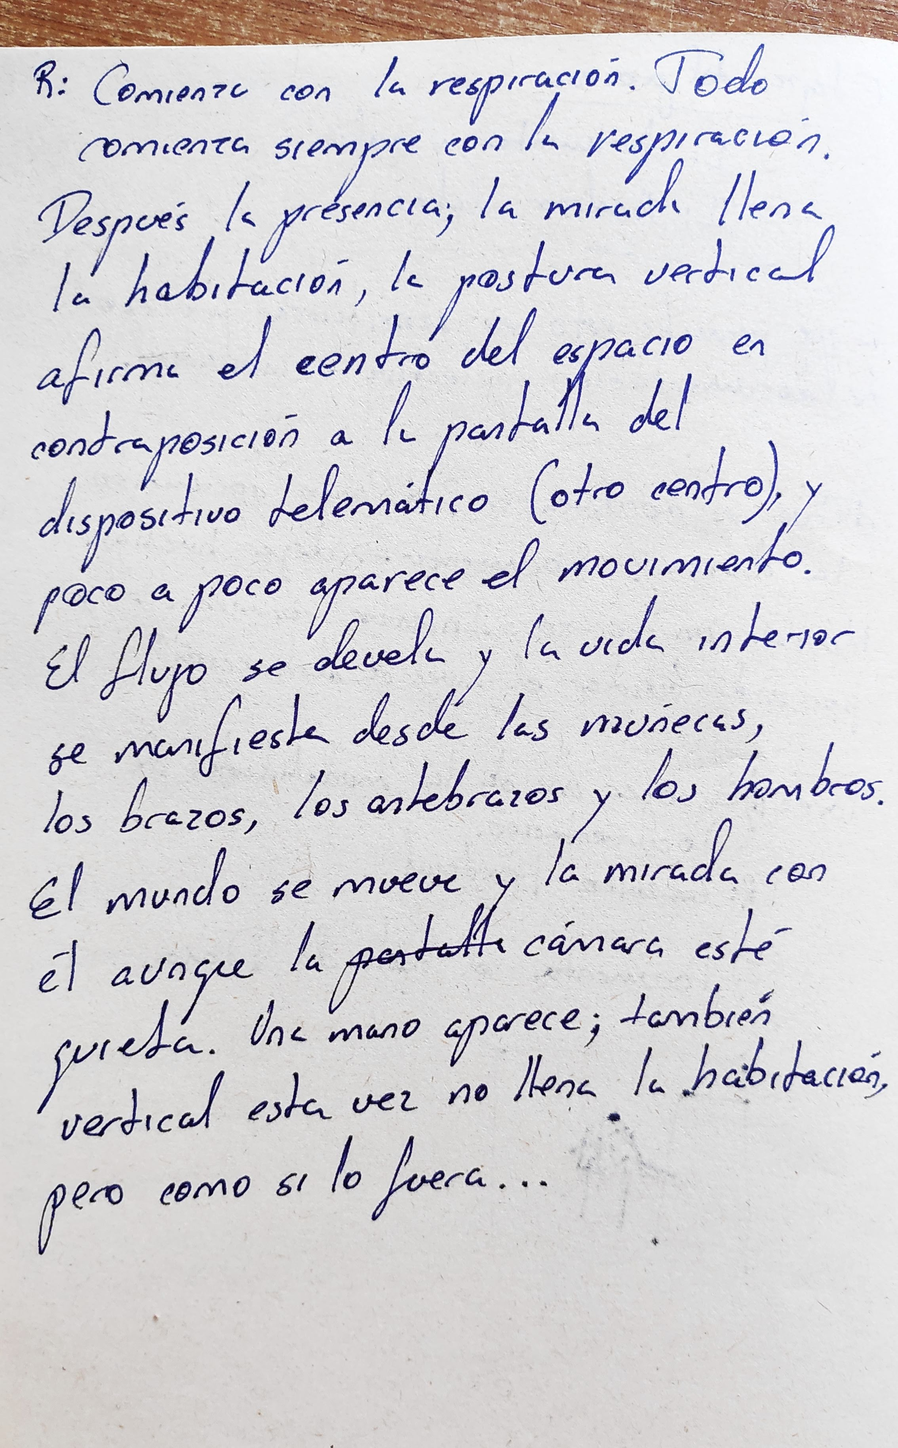 R: Comienza con la respiración. Todo
comienza siempre con la respiración.
Después la presencia; la mirada llena
la habitación, la postura vertical
afirma el centro del espacio en
contraposición a la pantalla del
dispositivo telemático (otro centro), y
poco a poco aparece el movimiento.
El flujo se devela y la vida interior
se manifiesta desde las muñecas,
los brazos, los antebrazos y los hombros.
El mundo se mueve y la mirada con
él aunque la pantalla cámara esté
quieta. Una mano aparece; también
vertical esta vez no llena la habitación,
pero como si lo fuera...